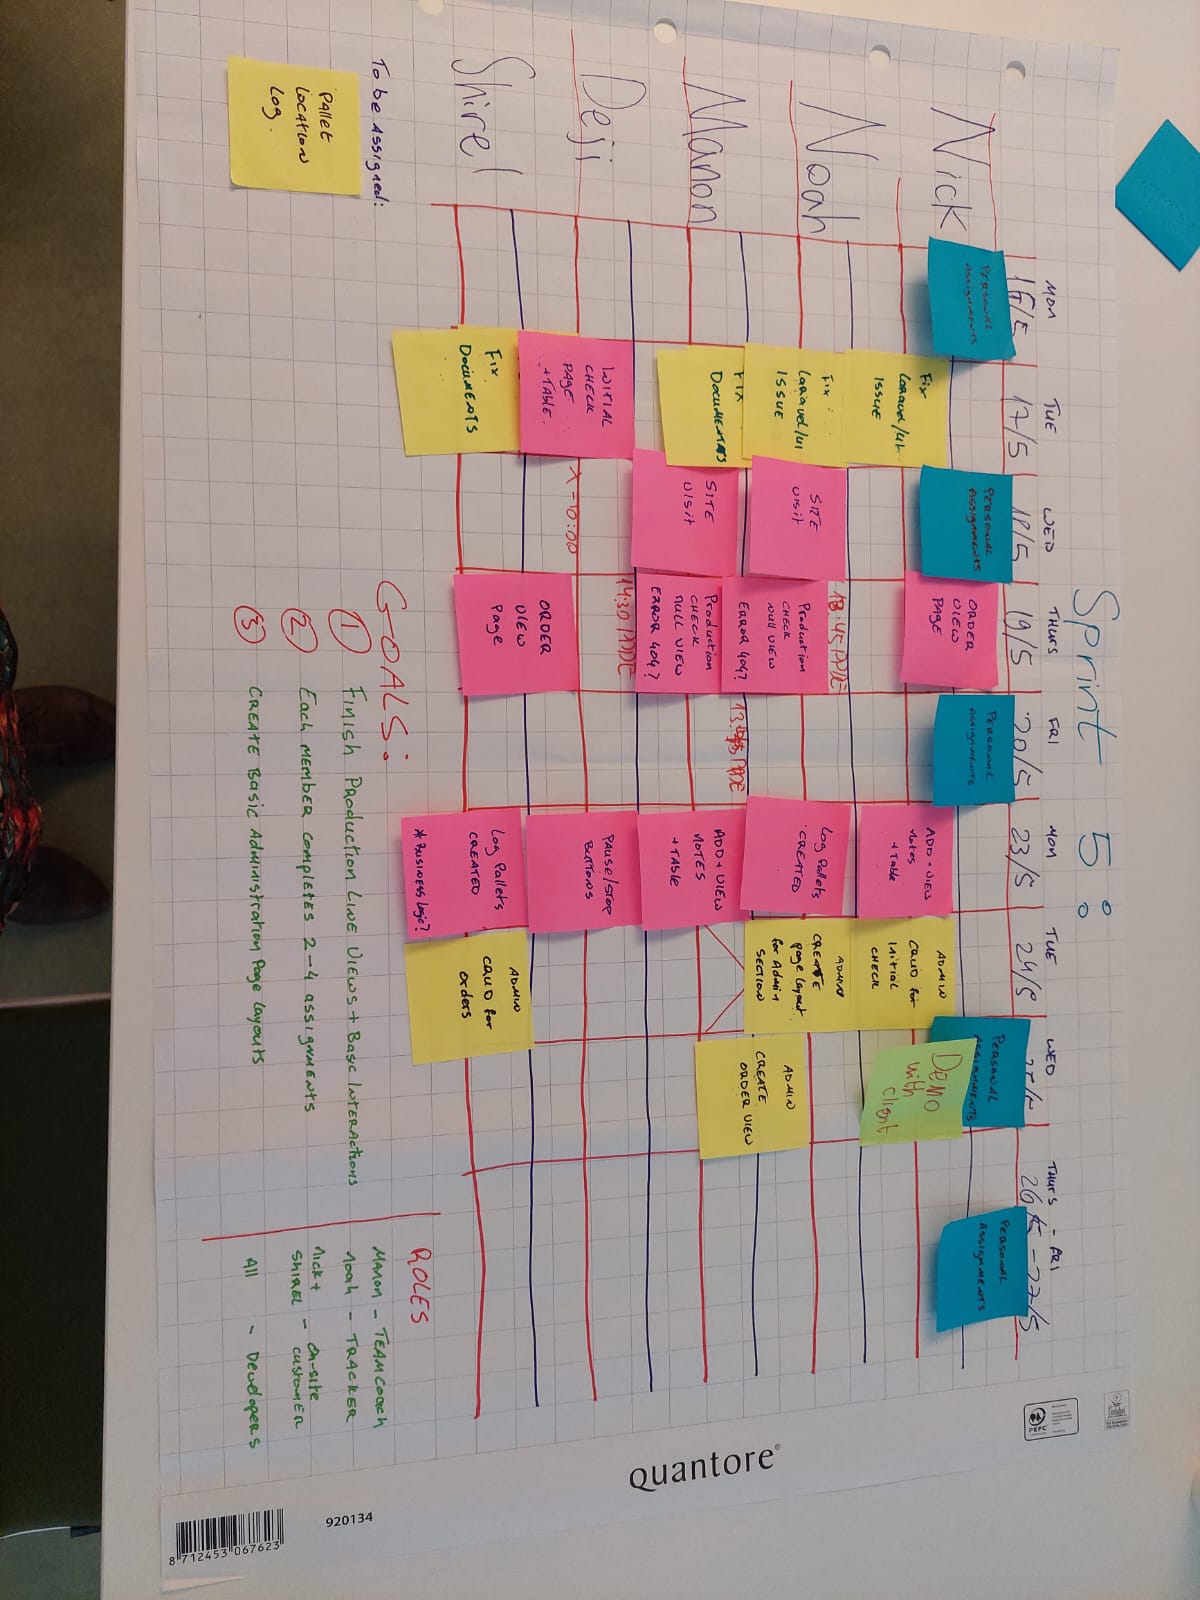 Sprint 5:
MON
16/5
TUE
17/5
WED
18/5
THURS
19/5
FRI
20/5
MON
23/5
TUE
24/5
WED
THURS - FRI
26/5 - 27/5
Nick
PERSONAL
ASSIGNMENTS
Fix
Laravel/UI
ISSUE
PERSONAL
ASSIGNMENTS
ORDER
VIEW
PAGE
PERSONAL
ASSIGNMENTS
ADD + VIEW
Notes
+ Table
ADMIN
CRUD for
Initial
CHECK
PERSONAL
ASSIGNMENTS
DEMO
with
client
PERSONAL
ASSIGNMENTS
Noah
Fix
Laravel/UI
ISSUE
SITE
Visit
13:45
Production
CHECK
NULL VIEW
ERROR 404?
Log Pallets
CREATED
ADMIN
CREATE
page layout
for Admin
SECTION
ADMIN
CREATE
ORDER VIEW
Manon
FIX
DOCUMENTS
SITE
Visit
Production
CHECK
NULL VIEW
ERROR 404?
ADD + VIEW
NOTES
+ TABLE
Deji
INITIAL
CHECK
PAGE
+ TABLE.
X - 10:00
14:30
PAUSE/STOP
BUTTONS
Shirel
FIX
DOCUMENTS
ORDER
VIEW
Page
Log Pallets
CREATED
*BUSINESS Logic?
ADMIN
CRUD for
orders
To be Assigned:
PALLET
LOCATION
LOG.
GOALS:
① FINISH PRODUCTION LINE VIEWS + BASIC INTERACTIONS
② Each MEMBER COMPLETES 2-4 ASSIGNMENTS
③ CREATE BASIC ADMINISTRATION PAGE LAYOUTS
ROLES
Manon - TEAMCOACH
Noah - TRACKER
Nick + on-site
SHIREL - customer
All - Developers
PEFC
quantore
920134
8 712453 067623